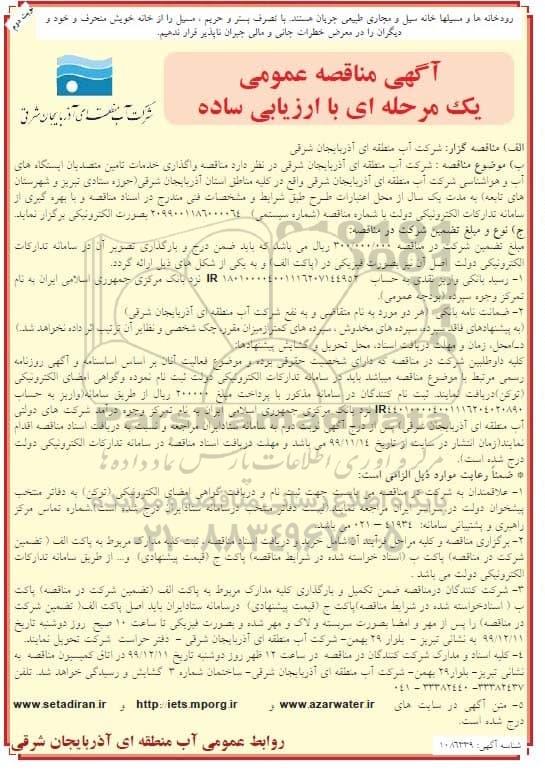 نوبت دوم
رودخانه ها و مسیلها خانه سیل و مجاری طبیعی جریان هستند. با تصرف بستر و حریم ، مسیل را از خانه خویش منحرف و خود و
دیگران را در معرض خطرات جانی و مالی جبران ناپذیر قرار ندهیم.
آگهی مناقصه عمومی
یک مرحله ای با ارزیابی ساده
شرکت آب منطقه ای آذربایجان شرقی
الف) مناقصه گزار: شرکت آب منطقه ای آذربایجان شرقی
ب) موضوع مناقصه : شرکت آب منطقه ای آذربایجان شرقی در نظر دارد مناقصه واگذاری خدمات تامین متصدیان ایستگاه های
آب و هواشناسی شرکت آب منطقه ای آذربایجان شرقی واقع در کلیه مناطق استان آذربایجان شرقی(حوزه ستادی تبریز و شهرستان
های تابعه) به مدت یک سال از محل اعتبارات طرح طبق شرایط و مشخصات فنی مندرج در اسناد مناقصه و با بهره گیری از
سامانه تدارکات الکترونیکی دولت با شماره مناقصه (شماره سیستمی) ۲۰۹۹۰۰۱۱۸۶۰۰۰۰۶۴ بصورت الکترونیکی برگزار نماید.
ج) نوع و مبلغ تضمین شرکت در مناقصه:
مبلغ تضمین شرکت در مناقصه ۳۰۰/۰۰۰/۰۰۰ ریال می باشد که باید ضمن درج و بارگذاری تصویر آن در سامانه تدارکات
الکترونیکی دولت اصل آن نیز بصورت فیزیکی در (پاکت الف) و به یکی از شکل های ذیل ارائه گردد.
۱- رسید بانکی واریز نقدی به حساب IR ۱۸۰۱۰۰۰۰۴۰۰۱۱۱۶۲۰۷۱۴۴۹۵۲ نزد بانک مرکزی جمهوری اسلامی ایران به نام
تمرکز وجوه سپرده (بودجه عمومی).
۲- ضمانت نامه بانکی، (هر دو مورد به نام متقاضی و به نفع شرکت آب منطقه ای آذربایجان شرقی)
(به پیشنهادهای فاقد سپرده، سپرده های مخدوش، سپرده های کمتر ازمیزان مقرر، چک شخصی و نظایر آن ترتیب اثر داده نخواهد شد.)
د-)محل، زمان و مهلت دریافت اسناد، محل تحویل و گشایش پیشنهادها:
کلیه داوطلبین شرکت در مناقصه که دارای شخصیت حقوقی بوده و موضوع فعالیت آنان بر اساس اساسنامه و آگهی روزنامه
رسمی مرتبط با موضوع مناقصه میباشد باید در سامانه تدارکات الکترونیکی دولت ثبت نام نموده وگواهی امضای الکترونیکی
(توکن)دریافت نمایند. ثبت نام کنندگان در سامانه مذکور با پرداخت مبلغ ۲۰۰۰۰۰ ریال از طریق سامانه(واریز به حساب
IR۴۴۰۱۰۰۰۰۴۰۰۱۱۱۶۲۰۴۰۲۰۸۹۰ نزد بانک مرکزی جمهوری اسلامی ایران به نام تمرکز وجوه درآمد شرکت های دولتی
آب منطقه ای آذربایجان شرقی) پس از درج آگهی نوبت دوم به سامانه ستادایران مراجعه و نسبت به دریافت اسناد مناقصه اقدام
نمایند(زمان انتشار در سایت از تاریخ ۹۹/۱۱/۱۴ می باشد و مهلت دریافت اسناد مناقصه در سامانه تدارکات الکترونیکی دولت
درج شده است).
* ضمناً رعایت موارد ذیل الزامی است:
۱- علاقمندان به شرکت در مناقصه می بایست جهت ثبت نام و دریافت گواهی امضای الکترونیکی (توکن) به دفاتر منتخب
پیشخوان دولت در سراسر کشور مراجعه نمایند(لیست دفاتر منتخب درسامانه ستادایران درج شده است)شماره تماس مرکز
راهبری و پشتیبانی سامانه: ۴۱۹۳۴ – ۰۲۱ می باشد.
۲-برگزاری مناقصه و کلیه مراحل فرآیند آن شامل خرید و دریافت اسناد مناقصه ، ثبت کلیه مدارک مربوط به پاکت الف ( تضمین
شرکت در مناقصه) پاکت ب (اسناد خواسته شده در شرایط مناقصه) پاکت ج (قیمت پیشنهادی) و... از طریق سامانه تدارکات
الکترونیکی دولت می باشد .
۳- شرکت کنندگان درمناقصه ضمن تکمیل و بارگذاری کلیه مدارک مربوط به پاکت الف (تضمین شرکت در مناقصه) پاکت
ب ( اسنادخواسته شده در شرایط مناقصه)پاکت ج (قیمت پیشنهادی) درسامانه ستادایران باید اصل پاکت الف( تضمین شرکت
در مناقصه) را پس از مهر و امضا بصورت سربسته و لاک و مهر شده و بصورت فیزیکی تا ساعت ۱۰ صبح روز دوشنبه تاریخ
۹۹/۱۲/۱۱ به نشانی تبریز - بلوار ۲۹ بهمن- شرکت آب منطقه ای آذربایجان شرقی - دفتر حراست شرکت تحویل نمایند.
۴-کلیه اسناد و مدارک شرکت کنندگان در مناقصه در ساعت ۱۲ ظهر روز دوشنبه تاریخ ۹۹/۱۲/۱۱ در اتاق کمیسیون مناقصه به
نشانی تبریز- بلوار ۲۹ بهمن- شرکت آب منطقه ای آذربایجان شرقی- ساختمان شماره ۳ گشایش و رسیدگی خواهد شد. تلفن
۳۳۳۸۲۴۳۷- ۳۳۳۸۲۴۴۰ - ۰۴۱
۵- متن آگهی در سایت های www.azarwater.ir و http://iets.mporg.ir و www.setadiran.ir
درج شده است.
شناسه آگهی: ۱۰۸۶۳۳۹
روابط عمومی آب منطقه ای آذربایجان شرقی